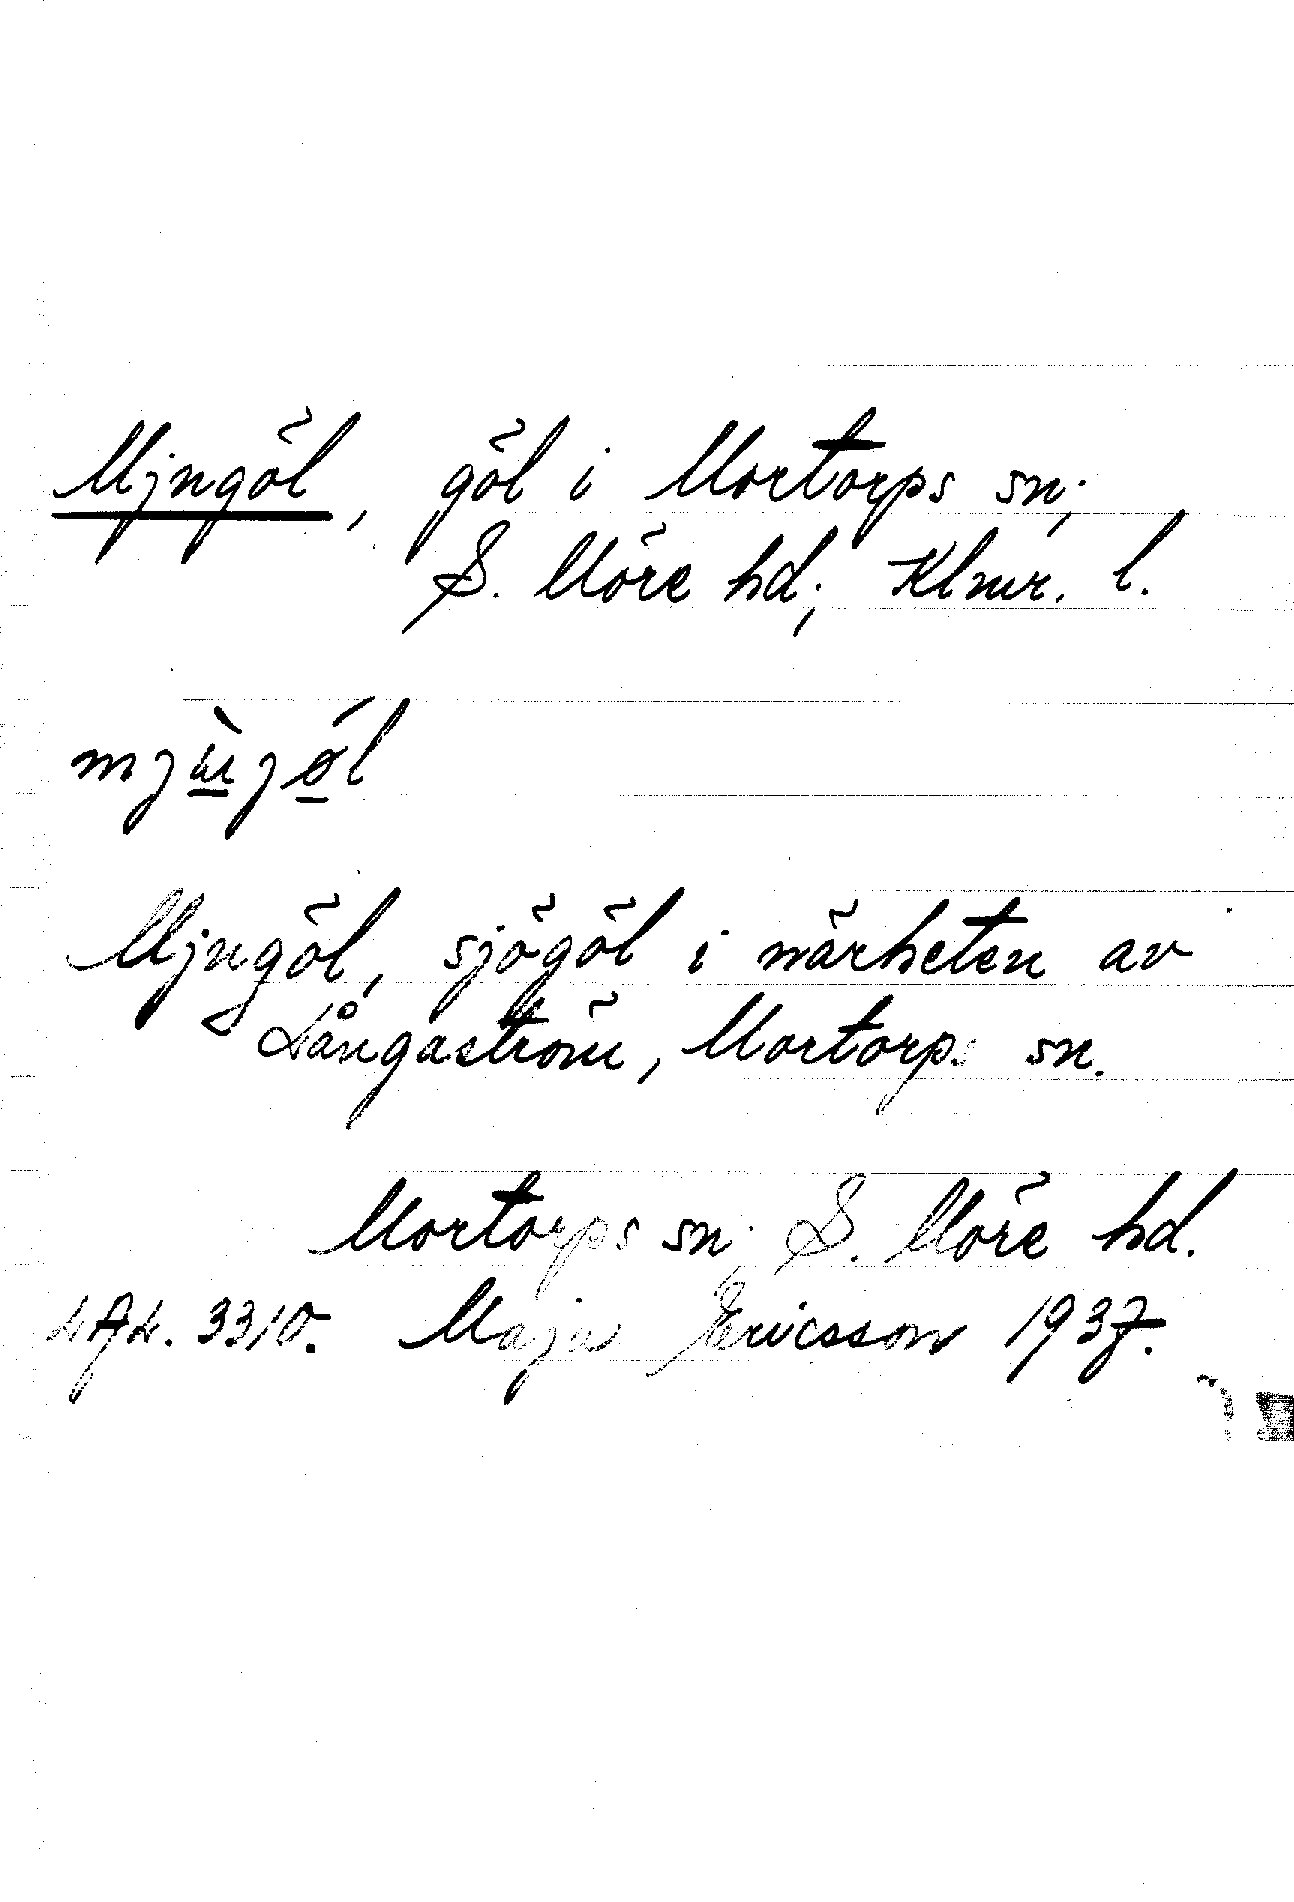 Mjngöl, göl i Mortorps sn;
S. Möre hd; Klmr. l.
Mjngöl, sjögöl i närheten av
Långaström, Mortorps sn.
Mortorps sn; S. Möre hd.
LAL. 3310. Maja Ericsson 1937.